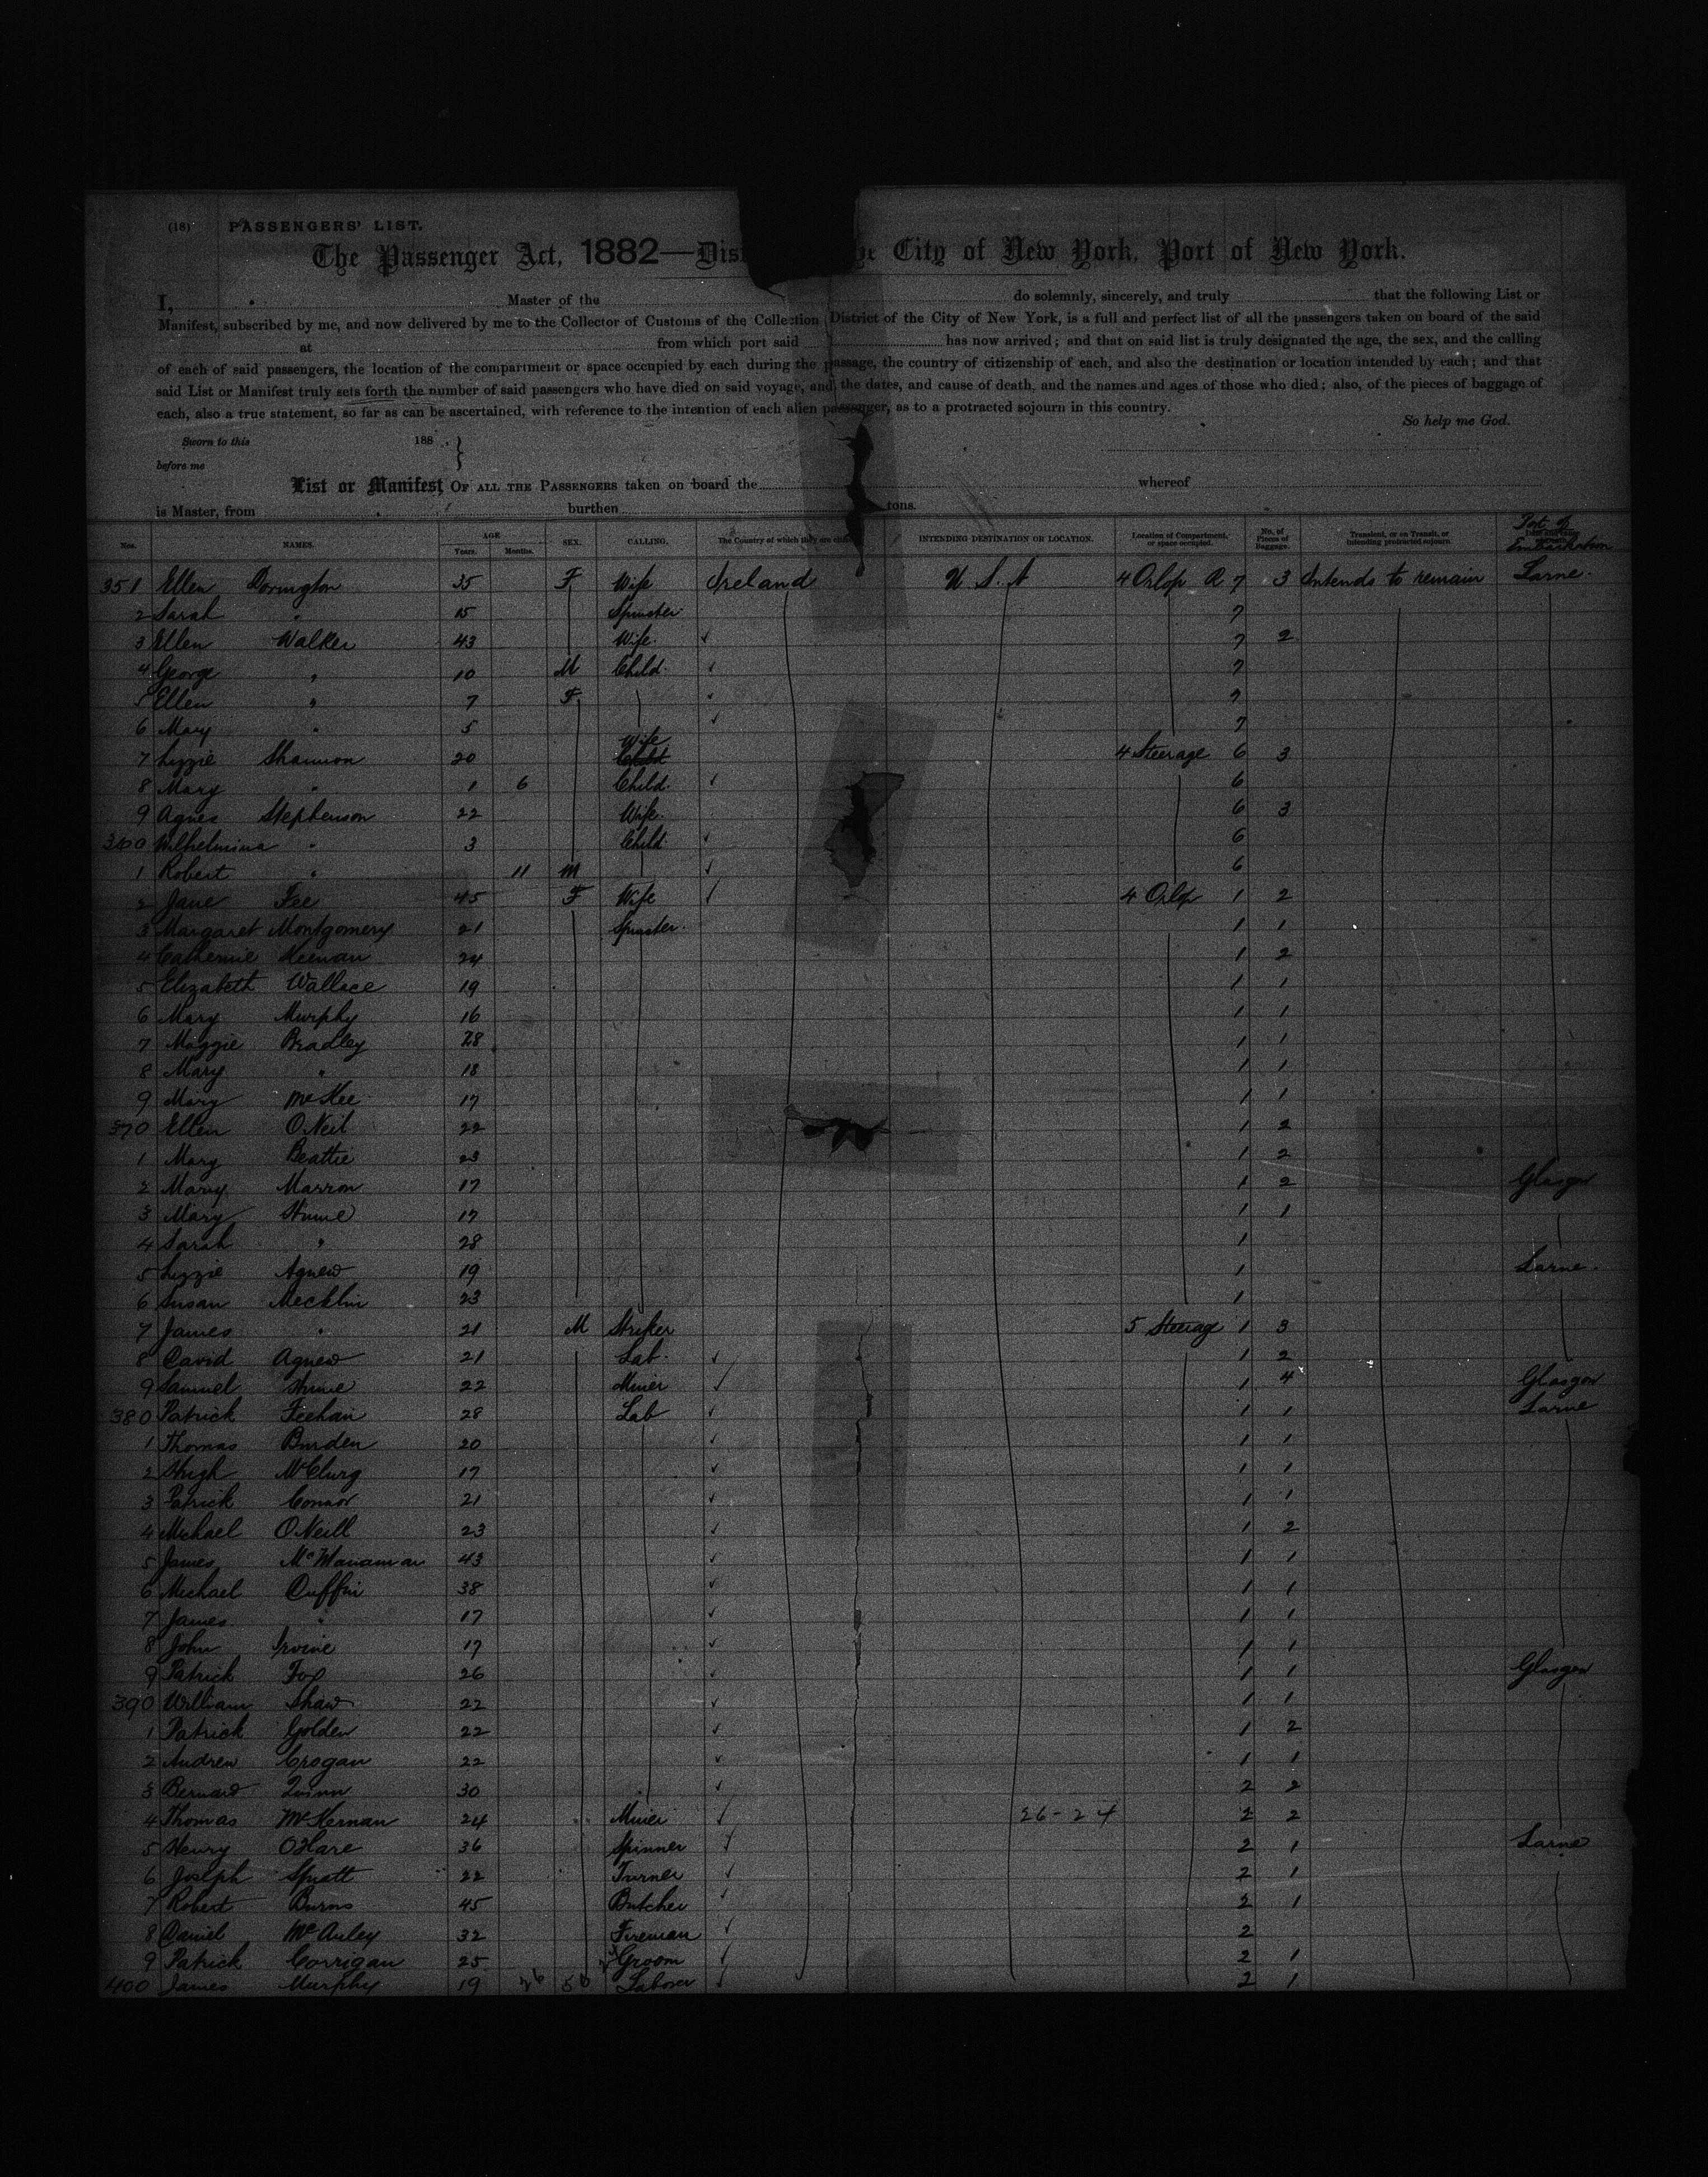 (18) PASSENGERS' LIST.
The Passenger Act, 1882—Dis City of New York, Port of New York.
I, Master of the do solemnly, sincerely, and truly that the following List or
Manifest, subscribed by me, and now delivered by me to the Collector of Customs of the Collection District of the City of New York, is a full and perfect list of all the passengers taken on board of the said
at from which port said has now arrived; and that on said list is truly designated the age, the sex, and the calling
of each of said passengers, the location of the compartment or space occupied by each during the passage, the country of citizenship of each, and also the destination or location intended by each; and that
said List or Manifest truly sets forth the number of said passengers who have died on said voyage, and the dates, and cause of death, and the names and ages of those who died; also, of the pieces of baggage of
each, also a true statement, so far as can be ascertained, with reference to the intention of each alien passenger, as to a protracted sojourn in this country.
So help me God.
Sworn to this 188 .
before me
List or Manifest OF ALL THE PASSENGERS taken on board the whereof
is Master, from burthen tons.
Nos. NAMES. AGE Years. Months. SEX. CALLING. The Country of which they are INTENDING DESTINATION OR LOCATION. Location of Compartment, or space occupied. No. of Pieces of Baggage. Transient, or on Transit, or intending protracted sojourn. Port of Embarkation
351 Ellen Dorington 35 F Wife Ireland U.S.A 4 Orlop A 7 3 Intends to remain Larne.
2 Sarah " 15 Spinster 7
3 Ellen Walker 43 Wife. ✓ 7 2
4 George " 10 M Child ✓ 7
5 Ellen " 7 F ✓ 7
6 Mary " 5 ✓ 7
7 Lizzie Shannon 20 Wife Child 4 Steerage 6 3
8 Mary " 1 6 Child. ✓ 6
9 Agnes Stephenson 22 Wife. 6 3
360 Wilhelmina " 3 Child ✓ 6
1 Robert " 11 M ✓ 6
2 Jane Fee 45 F Wife ✓ 4 Orlop 1 2
3 Margaret Montgomery 21 Spinster. 1 1
4 Catherine Keenan 24 1 2
5 Elizabeth Wallace 19 1 1
6 Mary Murphy 16 1 1
7 Maggie Bradley 28 1 1
8 Mary " 18 1 1
9 Mary McKee 17 1 1
370 Ellen O'Neil 22 1 2
1 Mary Beattie 23 1 2
2 Mary Marron 17 1 2 Glasgow
3 Mary Hume 17 1 1
4 Sarah " 28 1
5 Lizzie Agnew 19 1 Larne.
6 Susan Mecklin 23 1
7 James " 21 M Striker 5 Steerage 1 3
8 David Agnew 21 Lab. ✓ 1 2
9 Samuel Hume 22 Miner ✓ 1 4 Glasgow
380 Patrick Feehan 28 Lab ✓ 1 1 Larne
1 Thomas Burden 20 ✓ 1 1
2 Hugh McClurg 17 ✓ 1 1
3 Patrick Connor 21 ✓ 1 1
4 Michael O'Neill 23 ✓ 1 2
5 James McManaman 43 ✓ 1 1
6 Michael Cuffin 38 ✓ 1 1
7 James " 17 ✓ 1 1
8 John Irvine 17 ✓ 1 1
9 Patrick Fox 26 ✓ 1 1 Glasgow
390 William Shaw 22 ✓ 1 1
1 Patrick Golden 22 ✓ 1 2
2 Andrew Crogan 22 ✓ 1 1
3 Bernard Quinn 30 ✓ 2 2
4 Thomas McKernan 24 Miner ✓ 26-24 2 2
5 Henry O'Hare 36 Spinner ✓ 2 1 Larne
6 Joseph Spratt 22 Turner ✓ 2 1
7 Robert Burns 45 Butcher ✓ 2 1
8 Daniel McAuley 32 Fireman ✓ 2
9 Patrick Corrigan 25 Groom ✓ 2 1
400 James Murphy 19 26 50 Laborer ✓ 2 1